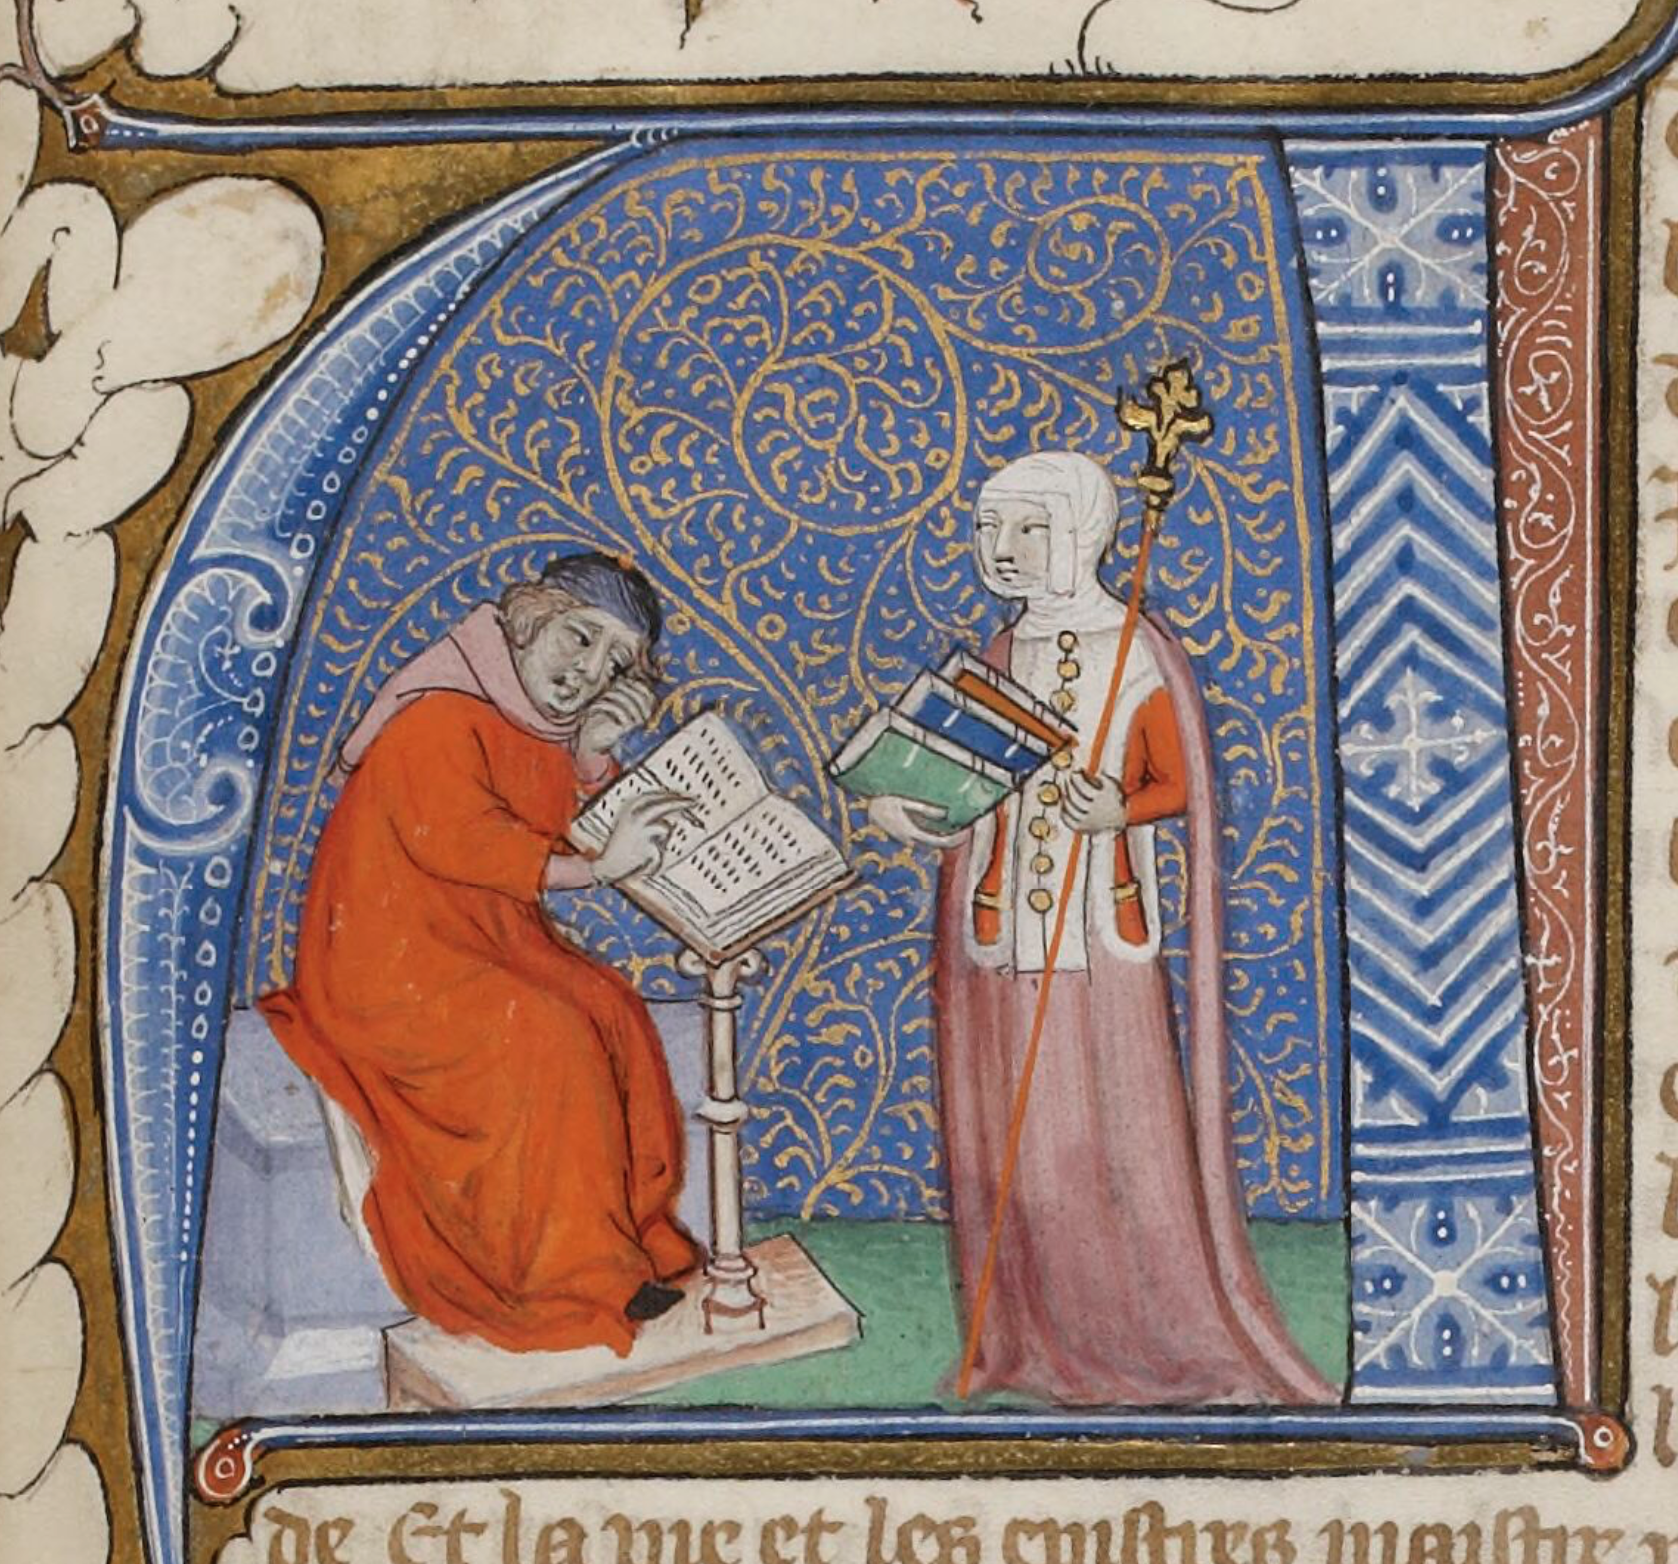 de Et la vie et les epistres maistre